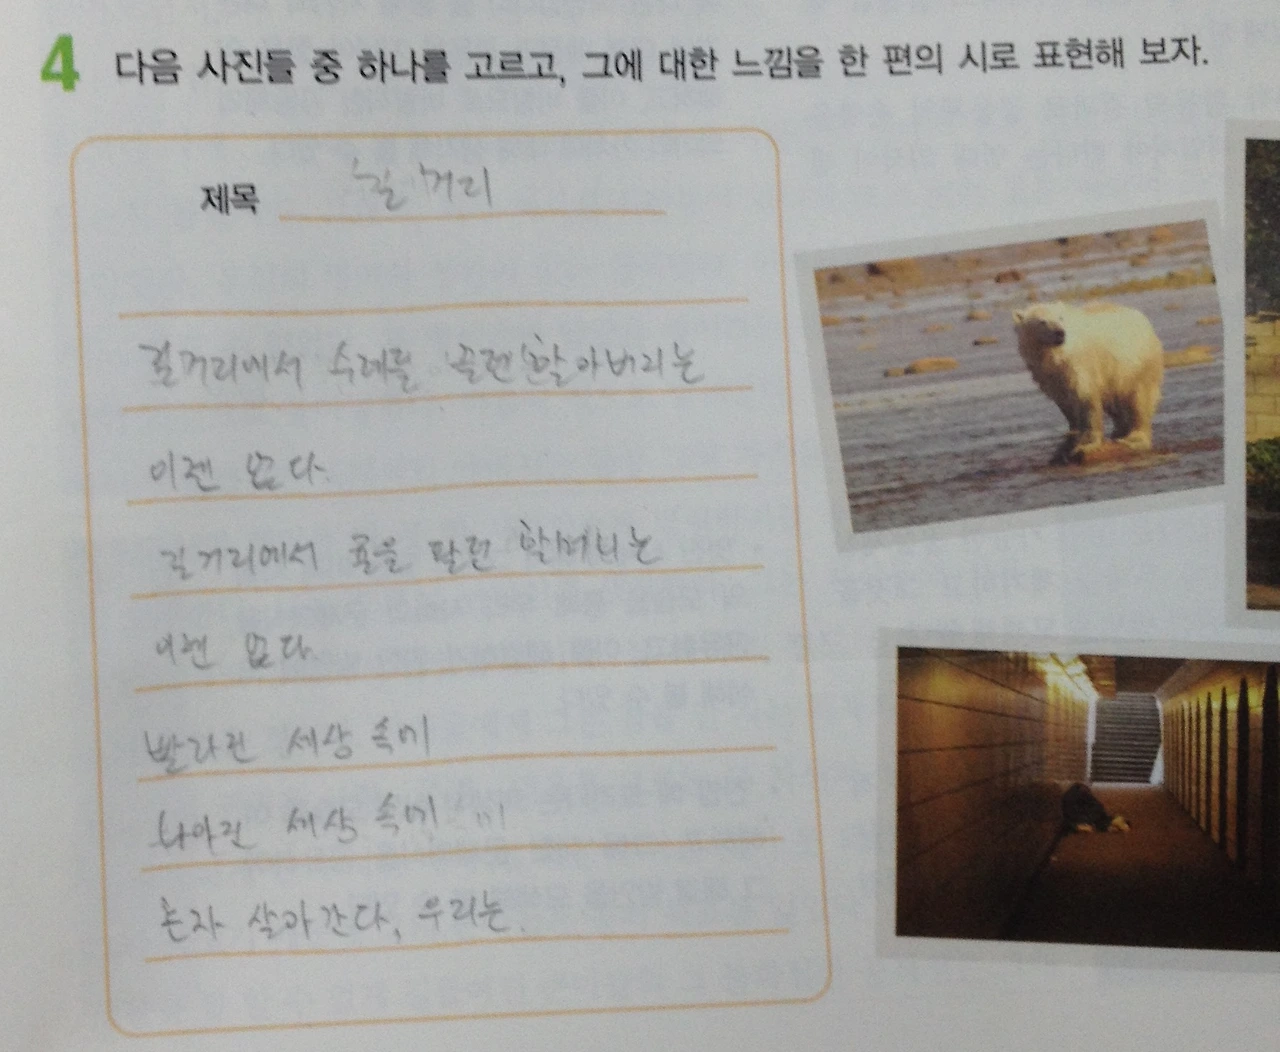 4 다음 사진들 중 하나를 고르고, 그에 대한 느낌을 한 편의 시로 표현해 보자.
제목 길거리
길거리에서 수레를 끌던 할아버지는
이젠 없다.
길거리에서 귤을 팔던 할머니는
이젠 없다
빨라진 세상 속에
나아진 세상 속에
혼자 살아간다, 우리는.